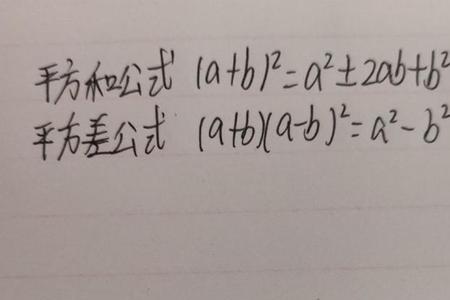 平方和公式 (a+b)²=a²±2ab+b²
平方差公式 (a+b)(a-b)²=a²-b²